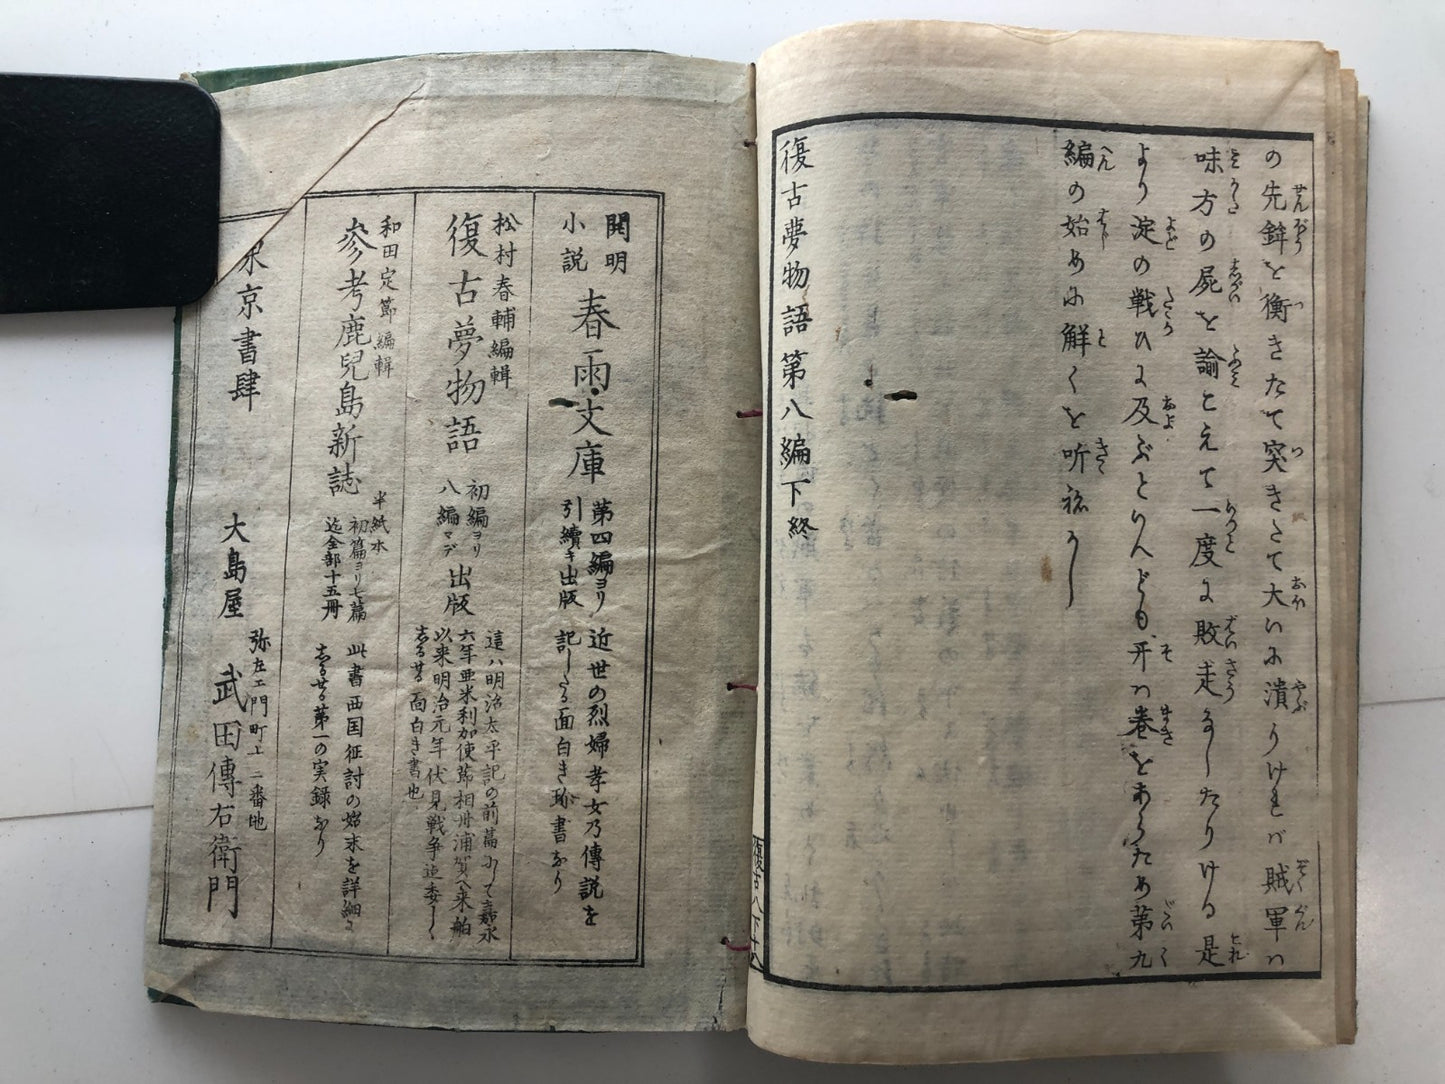 の先鋒を衝きたて突きたて大いに潰りけれバ賊軍ハ
味方の屍を踰こえて一度に敗走なしたりける是
より淀の戦ひに及ぶといへども开ハ巻をあらため第九
編の始めに解くを听ねかし
復古夢物語第八編下終
復古八下十八
開明小説 春雨文庫 第四編ヨリ引續キ出版 近世の烈婦孝女乃傳説を記したる面白き珍書なり
松村春輔編輯
復古夢物語 初編ヨリ八編マデ出版 這ハ明治太平記の前篇にして嘉永六年亜米利加使節相州浦賀へ来舶以来明治元年伏見戦争迄委しくしるせる面白き書也
和田定節編輯
参考鹿児島新誌 半紙本初篇ヨリ七篇迄全部十五冊 此書西国征討の始末を詳細にしるせる第一の実録なり
京書肆 大島屋 弥左エ門町十二番地 武田傳右衛門